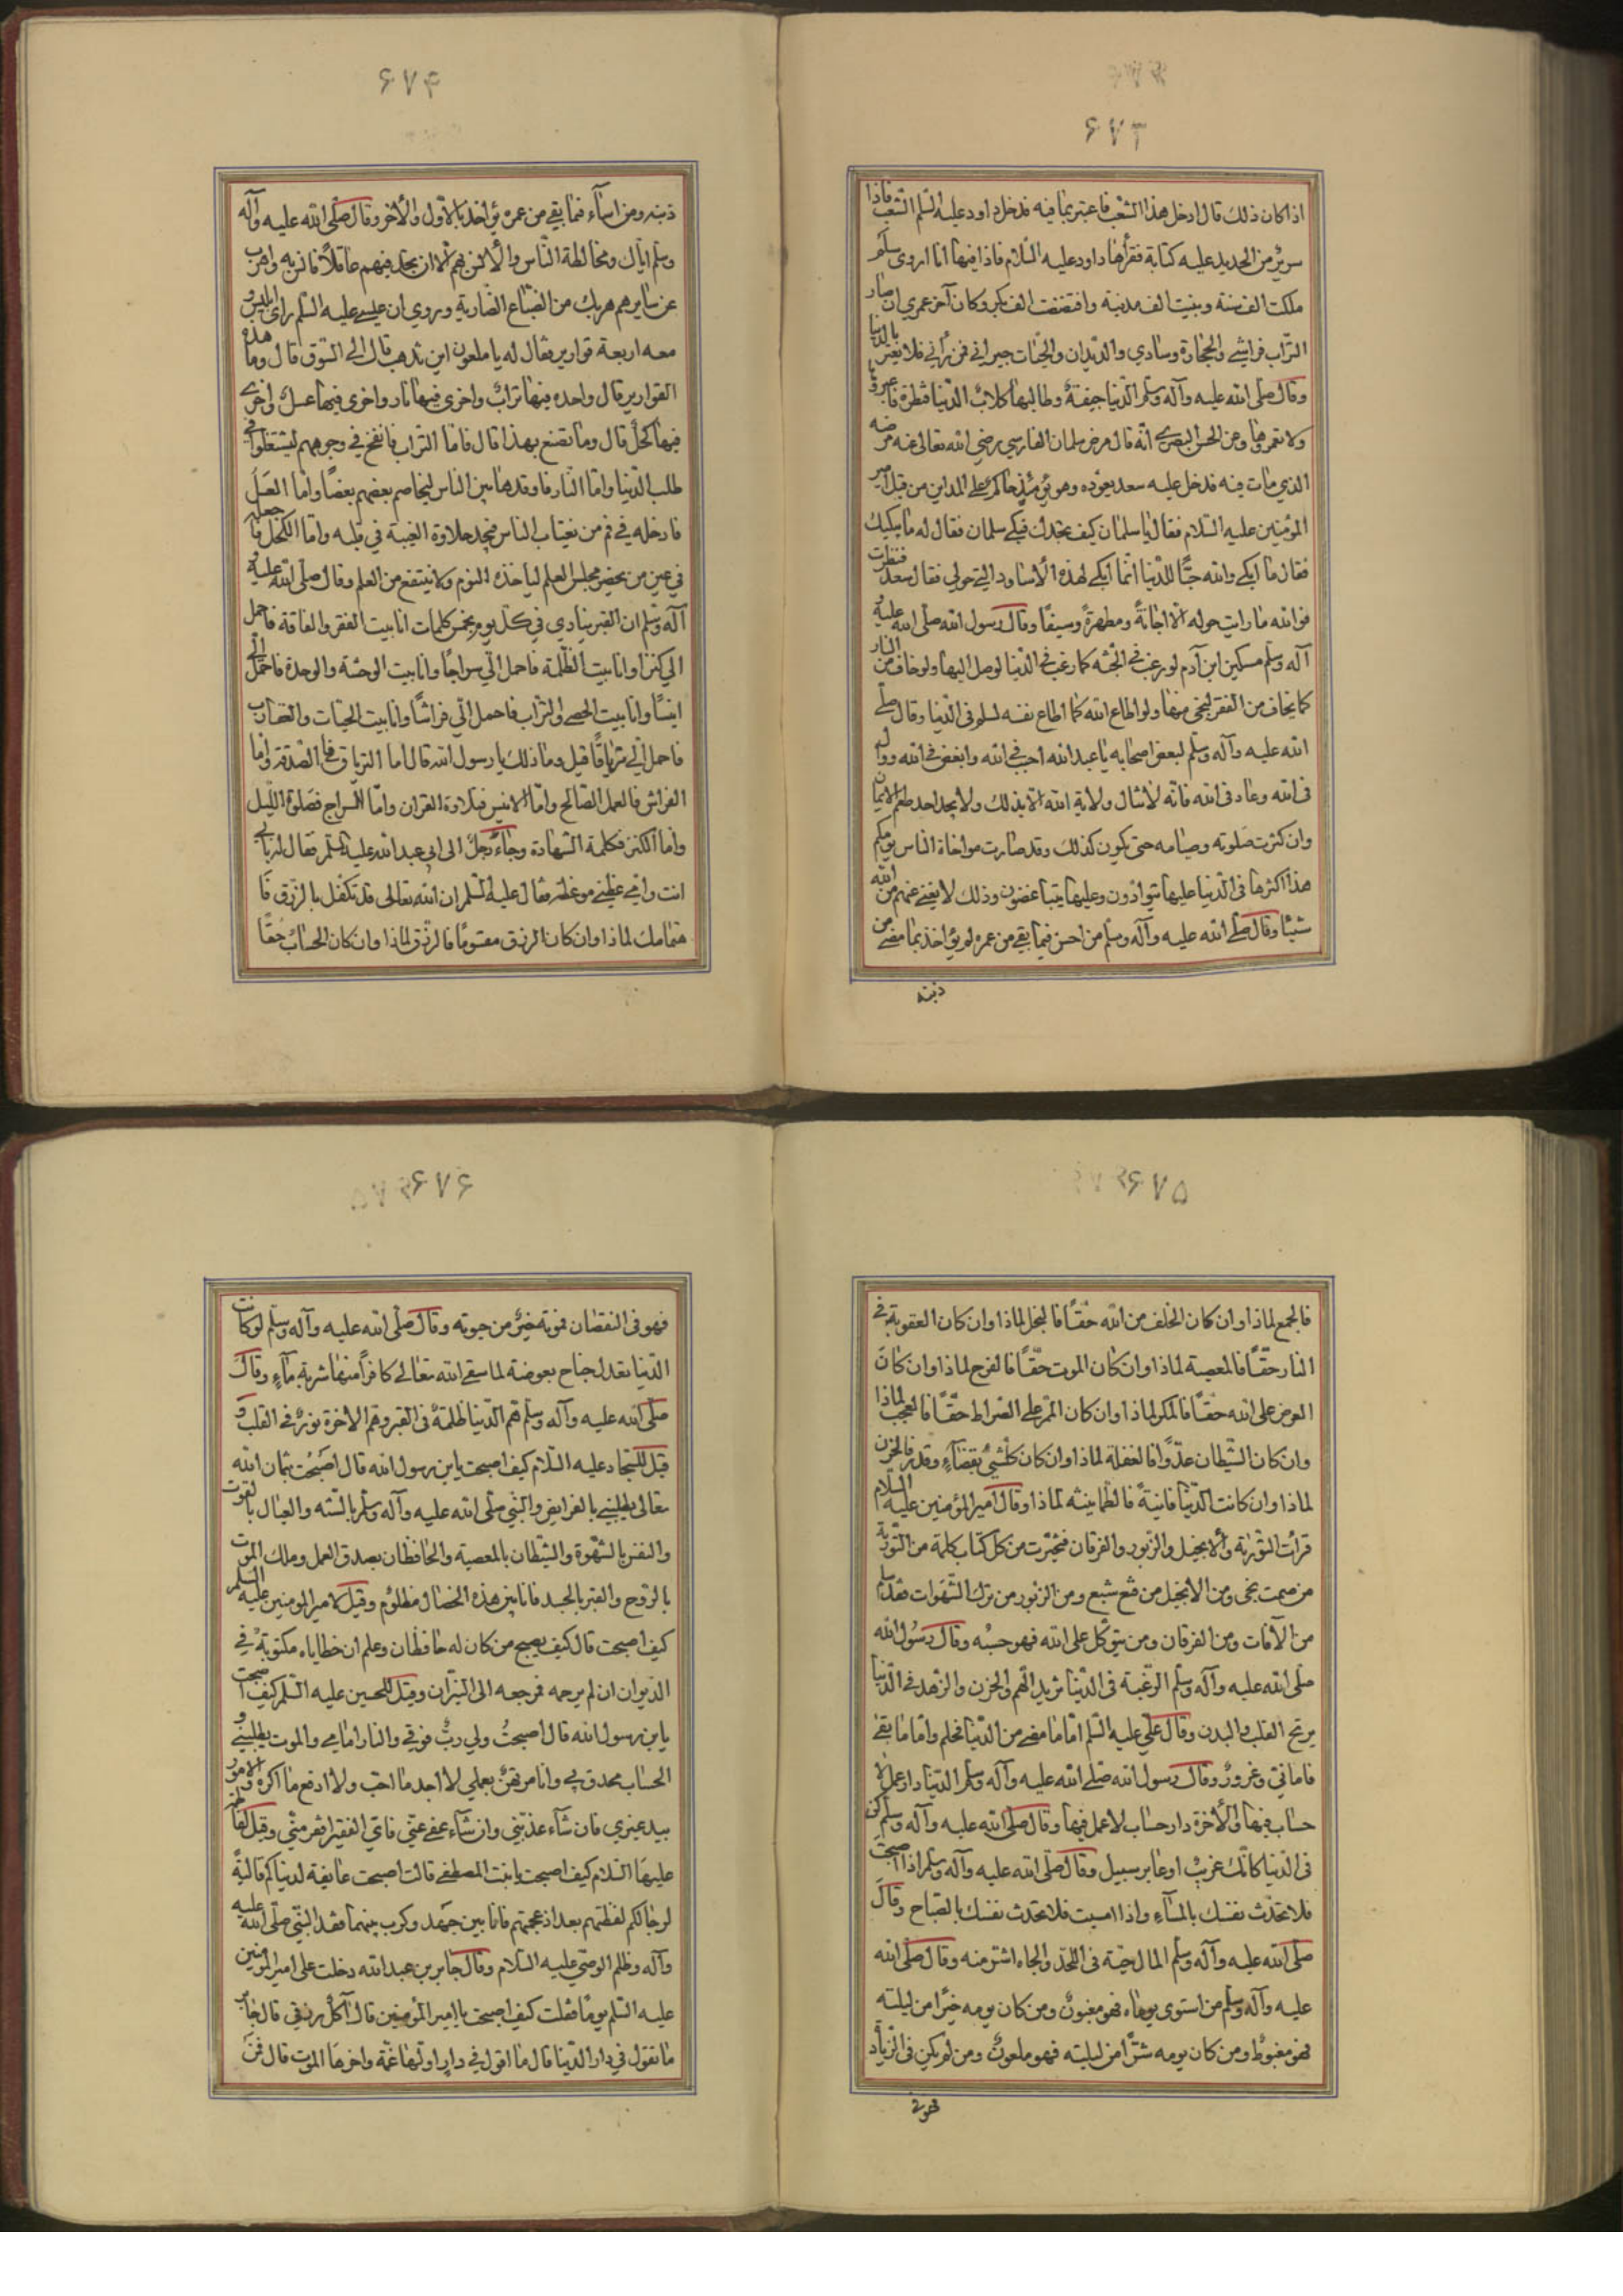 ۶۷۳
اذا كان ذلك قال ادخل هذا الشعب فاعتبر بما فيه فدخل داود عليه السلم الشعب فاذا
سرير من الحديد عليه كتابة فقرأها داود عليه السلام فاذا فيها انا اروى سلم
ملكت الف سنة وبنيت الف مدينة وافتضضت الف بكر وكان آخر عمري ان صار
التراب فراشي والحجارة وسادي والديدان والحيات جيراني فمن يراني فلا يغتر بالدنيا
وقال صلى الله عليه وآله وسلم الدنيا جيفة وطالبها كلاب الدنيا قنطرة فاعبروها
ولا تعمروها وعن الحسن البصري انه قال مرض سلمان الفارسي رضي الله تعالى عنه مرضه
الذي مات فيه فدخل عليه سعد يعوده وهو يومئذ حاكم على المداين من قبل امير
المؤمنين عليه السلام فقال يا سلمان كيف تجدك فبكى سلمان فقال له ما يبكيك
فقال ما ابكي والله حبا للدنيا انما ابكي لهذه الاساود التي حولي فقال سعد فنظرت
فوالله ما رايت حوله الا اجانة ومطهرة وسيفا وقال رسول الله صلى الله عليه و
آله وسلم مسكين ابن آدم لو رغب في الجنة كما رغب في الدنيا لوصل اليها ولو خاف من النار
كما يخاف من الفقر لنجى منها ولو اطاع الله كما اطاع نفسه لسلم في الدنيا وقال صلى
الله عليه وآله وسلم لبعض اصحابه يا عبد الله احب في الله وابغض في الله ووال
في الله وعاد في الله فانه لا تنال ولاية الله الا بذلك ولا يجد احد طعم الايمان
وان كثرت صلوته وصيامه حتى يكون كذلك وقد صارت مواخاة الناس يومكم
هذا اكثرها في الدنيا عليها يتوادون وعليها يتباغضون وذلك لا يغني عنهم من الله
شيئا وقال صلى الله عليه وآله وسلم من احسن فيما بقي من عمره لم يؤاخذ بما مضى من
ذنبه
۶۷۴
ذنبه ومن اساء فيما بقي من عمره يؤاخذ بالاول والاخر وقال صلى الله عليه وآله
وسلم اياك ومخالطة الناس والانس بهم الا ان تجد فيهم عاقلا فانس به واهرب
عن سايرهم هربك من السباع الضارية وروي ان عيسى عليه السلم راى ابليس و
معه اربعة قوارير فقال له يا ملعون اين تذهب قال الى السوق قال وما هذه
القوارير قال واحده فيها تراب واخرى فيها نار واخرى فيها عسل واخرى
فيها كحل قال وما تصنع بهذا قال فاما التراب فانفخ في وجوههم ليشتغلوا في
طلب الدنيا واما النار فاوقدها بين الناس ليخاصم بعضهم بعضا واما العسل
فادخله في فم من يغتاب الناس فيجد حلاوة الغيبة في قلبه واما الكحل فاجعله
في عين من يحضر مجلس العلم لياخذه النوم ولا ينتفع من العلم وقال صلى الله عليه و
آله وسلم ان القبر ينادي في كل يوم بخمس كلمات انا بيت الفقر والفاقة فاحمل
الي كنزا وانا بيت الظلمة فاحمل الي سراجا وانا بيت الوحشة والوحدة فاحمل الي
انيسا وانا بيت الحصى والتراب فاحمل الي فراشا وانا بيت الحيات والعقارب
فاحمل الي ترياقا قيل وما ذلك يا رسول الله قال اما الترياق فالصدقة واما
الفراش فالعمل الصالح واما الانيس فتلاوة القران واما السراج فصلوة الليل
واما الكنز فكلمة الشهادة وجاء رجل الى ابي عبد الله عليه السلم فقال له بابي
انت وامي عظني موعظة فقال عليه السلم ان الله تعالى قد تكفل بالرزق فا
هتمامك لماذا وان كان الرزق مقسوما فالرزق لماذا وان كان الحساب حقا
۶۷۵
فالجمع لماذا وان كان الخلف من الله حقا فالبخل لماذا وان كان العقوبة في
النار حقا فالمعصية لماذا وان كان الموت حقا فالفرح لماذا وان كان
العرض على الله حقا فالمكر لماذا وان كان الممر على الصراط حقا فالعجب لماذا
وان كان الشيطان عدوا فالغفلة لماذا وان كان كلشئ بقضاء وقدر فالحزن
لماذا وان كانت الدنيا فانية فالطمانينة لماذا وقال امير المؤمنين عليه السلام
قرات التورية والانجيل والزبور والفرقان فتخيرت من كل كتاب كلمة من التورية
من صمت نجى ومن الانجيل من قنع شبع ومن الزبور من ترك الشهوات فقد سلم
من الآفات ومن الفرقان ومن يتوكل على الله فهو حسبه وقال رسول الله
صلى الله عليه وآله وسلم الرغبة في الدنيا تزيد الهم والحزن والزهد في الدنيا
يريح القلب والبدن وقال علي عليه السلم اما ما مضى من الدنيا فحلم واما ما بقى
فاماني وغرور وقال رسول الله صلى الله عليه وآله وسلم الدنيا دار عمل لا
حساب فيها والاخرة دار حساب لا عمل فيها وقال صلى الله عليه وآله وسلم كن
في الدنيا كانك غريب او عابر سبيل وقال صلى الله عليه وآله وسلم اذا اصبحت
فلا تحدث نفسك بالمساء واذا امسيت فلا تحدث نفسك بالصباح وقال
صلى الله عليه وآله وسلم المال حية في اللحد والجاه اشر منه وقال صلى الله
عليه وآله وسلم من استوى يوماه فهو مغبون ومن كان يومه خيرا من ليلته
فهو مغبوط ومن كان يومه شرا من ليلته فهو ملعون ومن لم يكن في الزيادة
فهو في
۶۷۶
فهو في النقصان فموته خير من حيوته وقال صلى الله عليه وآله وسلم لو كانت
الدنيا تعدل جناح بعوضة لما سقى الله تعالى كافرا منها شربة ماء وقال
صلى الله عليه وآله وسلم هم الدنيا ظلمة في القبر وهم الاخرة نور في القلب و
قيل للسجاد عليه السلام كيف اصبحت يابن رسول الله قال اصبحت بثمان الله
تعالى يطلبني بالفرايض والنبي صلى الله عليه وآله وسلم بالسنه والعيال بالقوت
والنفس بالشهوة والشيطان بالمعصية والحافظان بصدق العمل وملك الموت
بالروح والقبر بالجسد فانا بين هذه الخصال مظلوم وقيل لامير المومنين عليه السلم
كيف اصبحت قال كيف يصبح من كان له حافظان وعلم ان خطاياه مكتوبة في
الديوان ان لم يرحمه فمرجعه الى النيران وقيل للحسين عليه السلم كيف اصبحت
يابن رسول الله قال اصبحت ولي رب فوقي والنار امامي والموت يطلبني و
الحساب محدق بي وانا مرتهن بعملي لا اجد ما احب ولا ادفع ما اكره والامور
بيد غيري فان شاء عذبني وان شاء عفى عني فاي الفقير افقر مني وقيل لفاطمة
عليها السلام كيف اصبحت يا بنت المصطفى قالت اصبحت عايفة لدنياكم قالية
لرجالكم لفظتهم بعد اذ عجمتهم فانا بين جهد وكرب بينهما فقد النبي صلى الله عليه
وآله وظلم الوصي عليه السلام وقال جابر بن عبد الله دخلت على امير المومنين
عليه السلم يوما فقلت كيف اصبحت يا امير المؤمنين قال آكل رزقي قال جابر
ما تقول في دار الدنيا قال ما اقول في دار اولها غمة واخرها الموت قال فمن